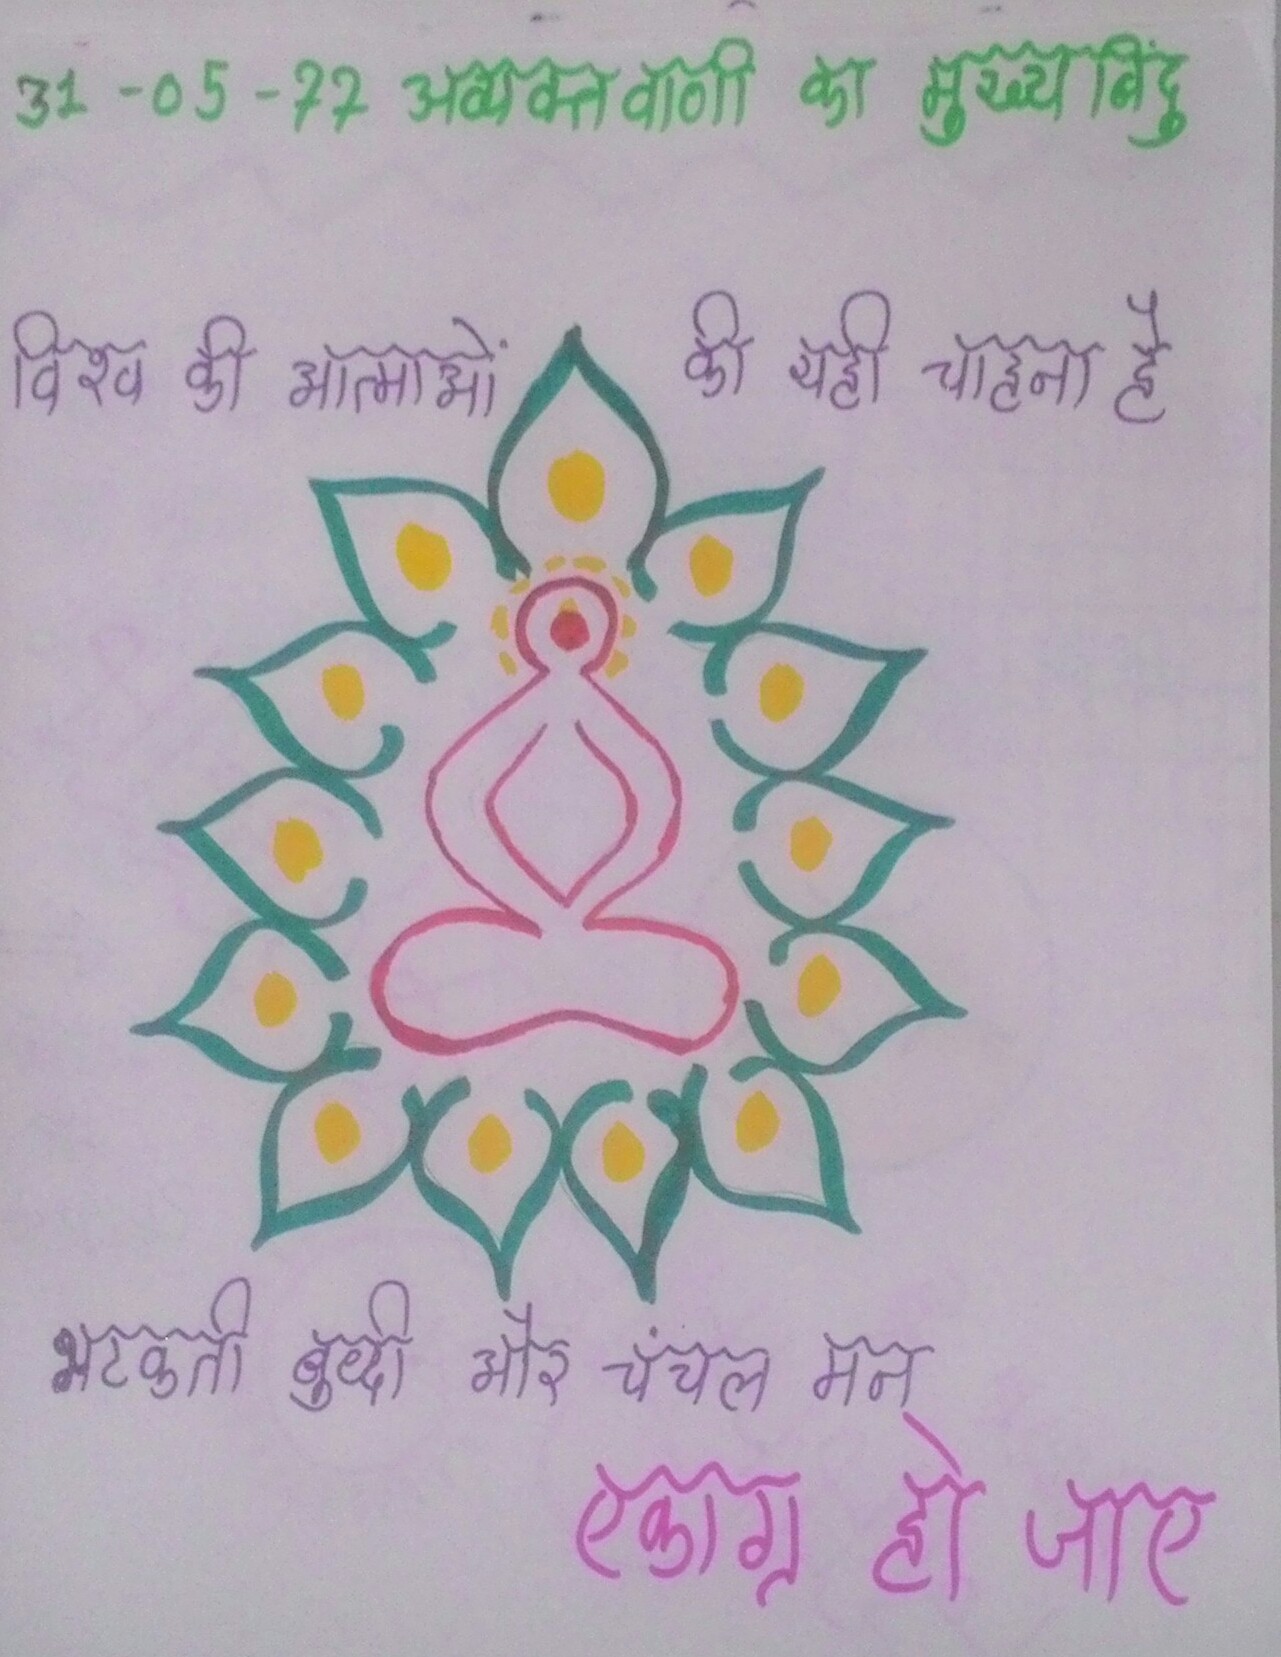 31-05-77 अव्यक्त वाणी का मुख्य बिंदु
विश्व की आत्माओं की यही चाहना है
भटकती बुध्दी और चंचल मन
एकाग्र हो जाए